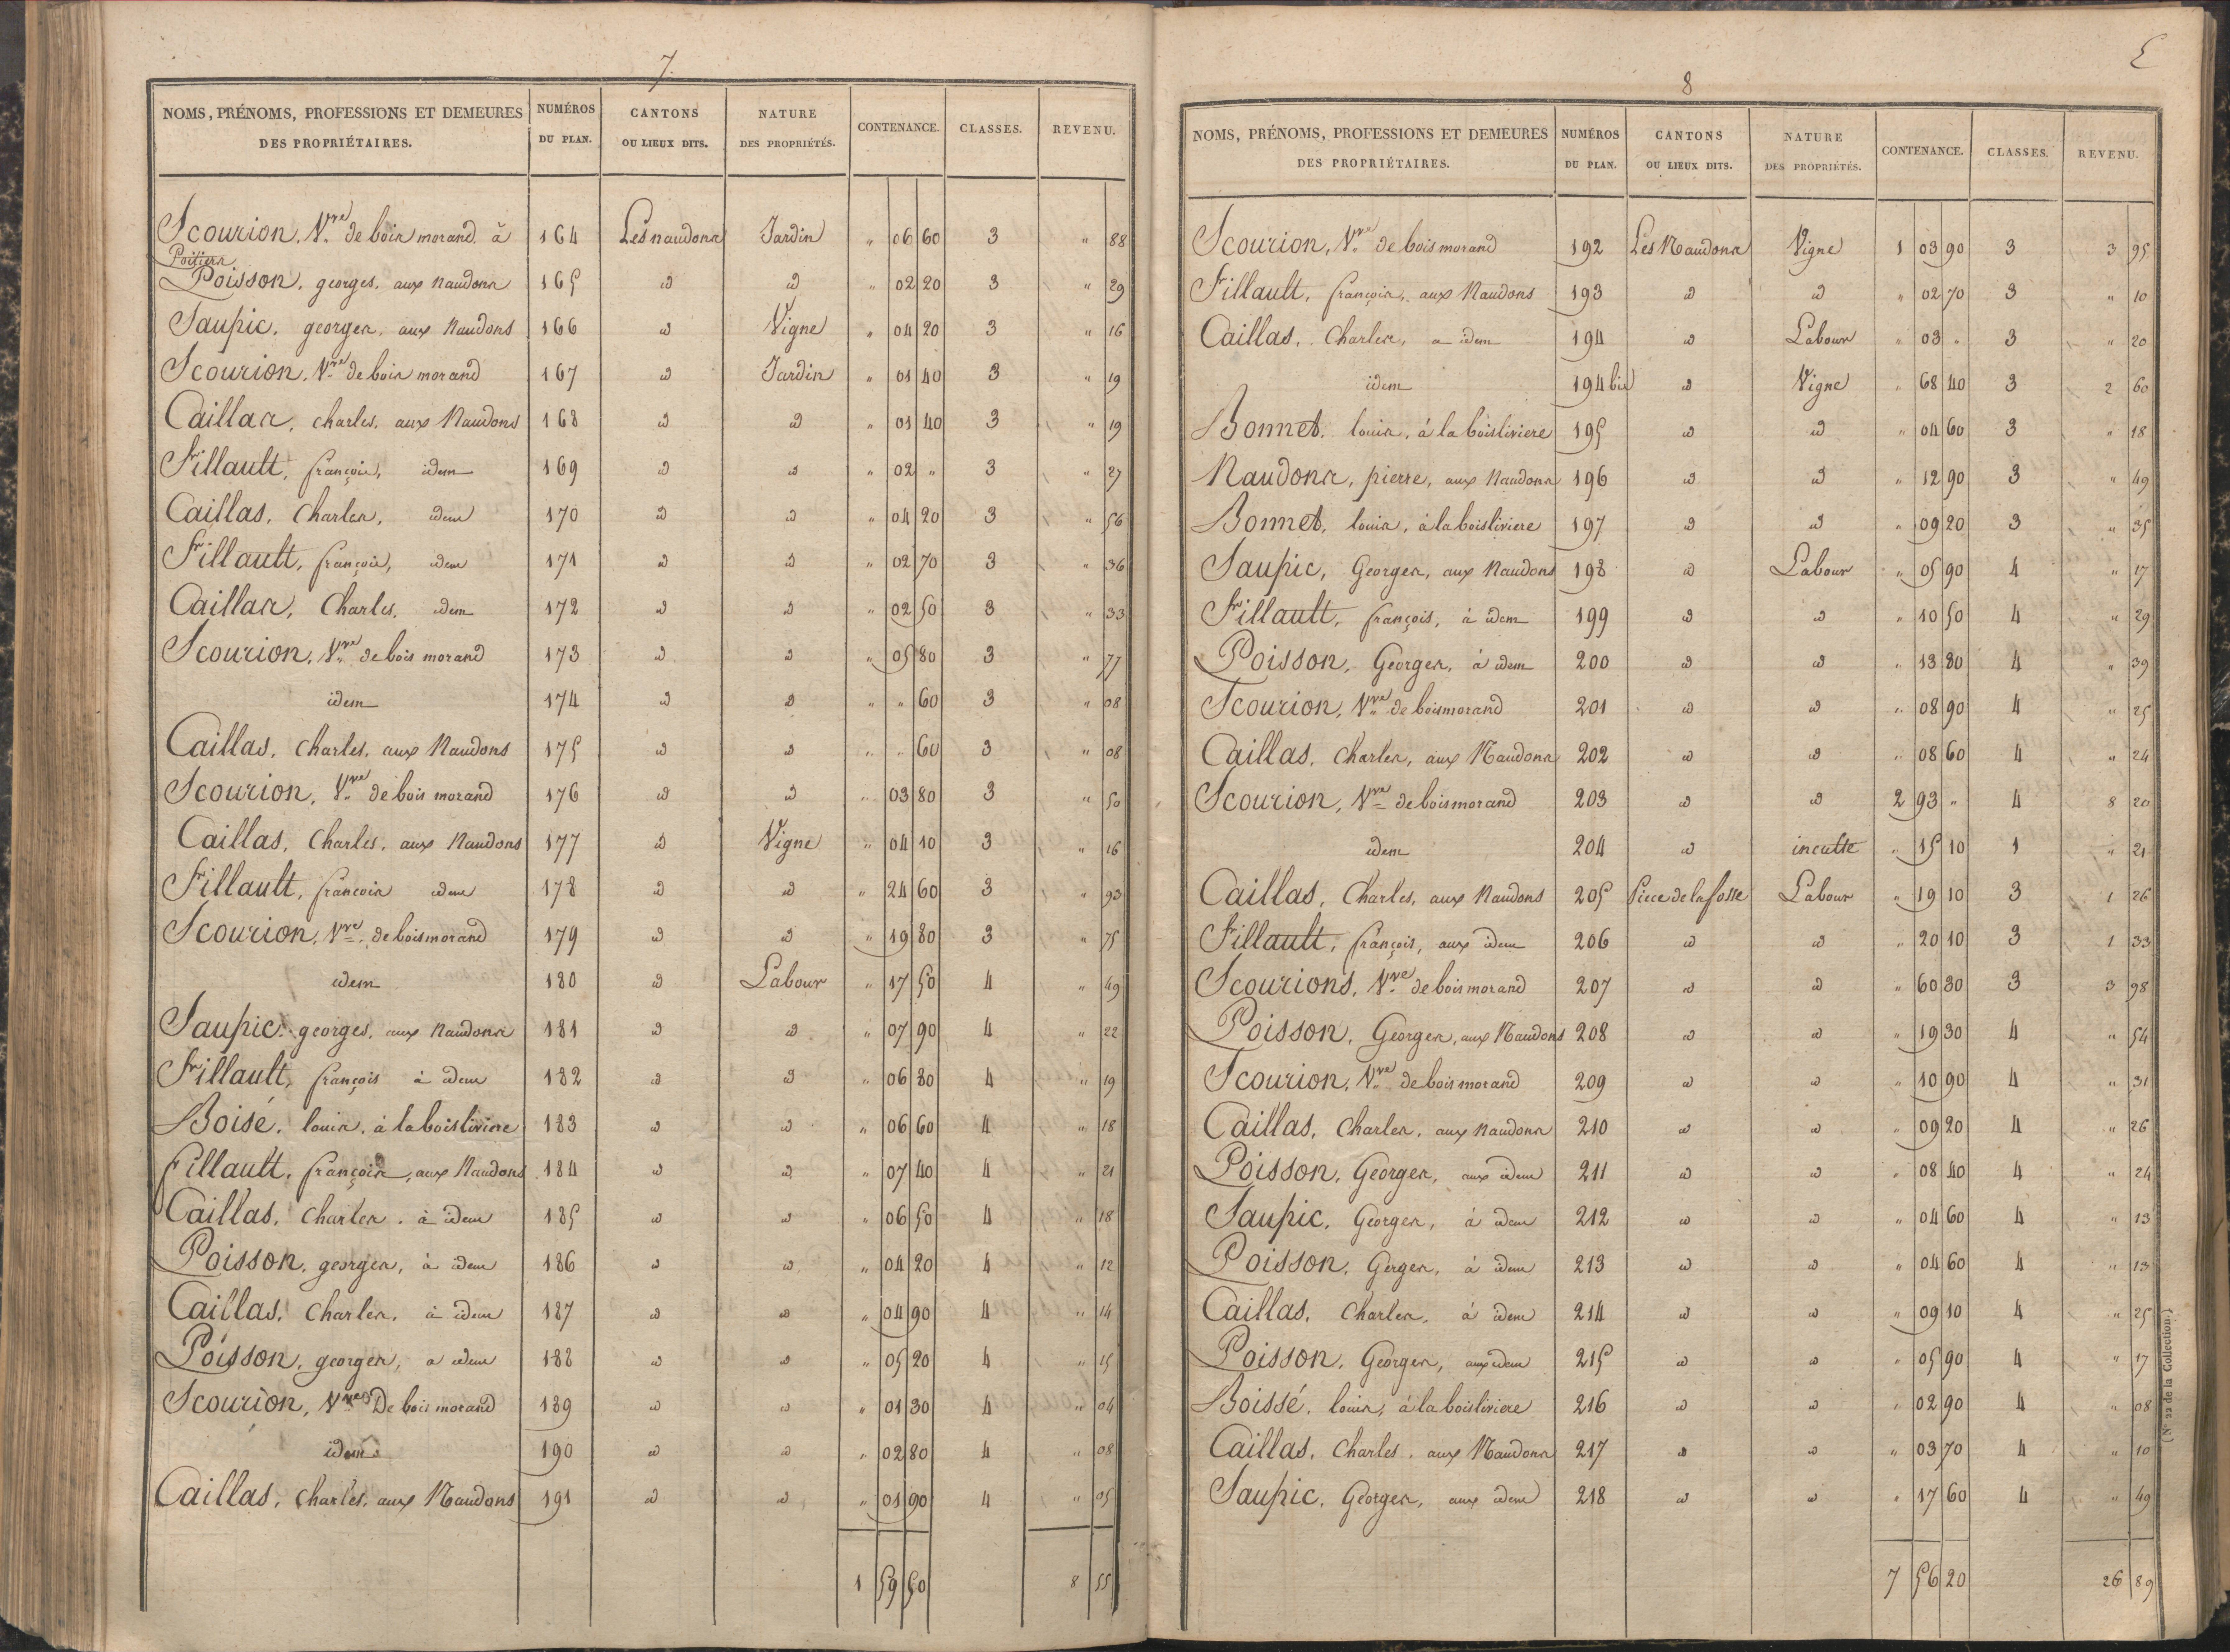 7.
NOMS, PRÉNOMS, PROFESSIONS ET DEMEURES DES PROPRIÉTAIRES. NUMÉROS DU PLAN. CANTONS OU LIEUX DITS. NATURE DES PROPRIÉTÉS. CONTENANCE. CLASSES. REVENU.
Scourion, Vve de bois morand à Poitiers 164 Les naudons Jardin " 06 60 3 " 88
Poisson, georges, aux naudons 165 id id " 02 20 3 " 29
Saupic, georges, aux Naudons 166 id Vigne " 04 20 3 " 16
Scourion, Vve de bois morand 167 id Jardin " 01 40 3 " 19
Caillas, charles, aux Naudons 168 id id " 01 40 3 " 19
Fillault, françois, idem 169 id id " 02 " 3 " 27
Caillas, Charles, idem 170 id id " 04 20 3 " 56
Fillault, françois, idem 171 id id " 02 70 3 " 36
Caillas, Charles, idem 172 id id " 02 50 3 " 33
Scourion, Vve de bois morand 173 id id " 05 80 3 " 77
idem 174 id id " " 60 3 " 08
Caillas, Charles, aux Naudons 175 id id " " 60 3 " 08
Scourion, Vve de bois morand 176 id id " 03 80 3 " 50
Caillas, Charles, aux Naudons 177 id Vigne " 04 10 3 " 16
Fillault, francois idem 178 id id " 24 60 3 " 93
Scourion, Vve de boismorand 179 id id " 19 80 3 " 75
idem 180 id Labour " 17 50 4 " 49
Saupic, georges, aux Naudons 181 id id " 07 90 4 " 22
Fillault, françois à idem 182 id id " 06 80 4 " 19
Boisé, louis, à la boisliviere 183 id id " 06 60 4 " 18
Fillault, françois, aux Naudons 184 id id " 07 40 4 " 21
Caillas, Charles, à idem 185 id id " 06 50 4 " 18
Poisson, georges, à idem 186 id id " 04 20 4 " 12
Caillas, Charles, à idem 187 id id " 04 90 4 " 14
Poisson, georges, a idem 188 id id " 05 20 4 " 15
Scourion, Vve De bois morand 189 id id " 01 30 4 " 04
idem 190 id id " 02 80 4 " 08
Caillas, Charles, aux Naudons 191 id id " 01 90 4 " 05
1 59 50 8 55
8
NOMS, PRÉNOMS, PROFESSIONS ET DEMEURES DES PROPRIÉTAIRES. NUMÉROS DU PLAN. CANTONS OU LIEUX DITS. NATURE DES PROPRIÉTÉS. CONTENANCE. CLASSES. REVENU.
Scourion, Vve de bois morand 192 Les Naudons Vigne 1 03 90 3 3 95
Fillault, françois, aux Naudons 193 id id " 02 70 3 " 10
Caillas, Charles, a idem 194 id Labour " 03 " 3 " 20
idem 194 bis id Vigne " 68 40 3 2 60
Bonnet, louis, à la boisliviere 195 id id " 04 60 3 " 18
Naudons, pierre, aux Naudons 196 id id " 12 90 3 " 49
Bonnet, louis, à la boisliviere 197 id id " 09 20 3 " 35
Saupic, Georges, aux Naudons 198 id Labour " 05 90 4 " 17
Fillault, françois, à idem 199 id id " 10 50 4 " 29
Poisson, Georges, à idem 200 id id " 13 80 4 " 39
Scourion, Vve de boismorand 201 id id " 08 90 4 " 25
Caillas, Charles, aux Naudons 202 id id " 08 60 4 " 24
Scourion, Vve de boismorand 203 id id 2 93 " 4 8 20
idem 204 id inculte " 15 10 1 " 21
Caillas, Charles, aux Naudons 205 Piece de la fosse Labour " 19 10 3 1 26
Fillault, françois, aux idem 206 id id " 20 10 3 1 33
Scourions, Vve de bois morand 207 id id " 60 30 3 3 98
Poisson, Georges, aux Naudons 208 id id " 19 30 4 " 54
Scourion, Vve de bois morand 209 id id " 10 90 4 " 31
Caillas, Charles, aux naudons 210 id id " 09 20 4 " 26
Poisson, Georges, aux idem 211 id id " 08 40 4 " 24
Saupic, Georges, à idem 212 id id " 04 60 4 " 13
Poisson, Gerges, à idem 213 id id " 04 60 4 " 13
Caillas, Charles, à idem 214 id id " 09 10 4 " 25
Poisson, Georges, aux idem 215 id id " 05 90 4 " 17
Boissé, louis, à la boisliviere 216 id id " 02 90 4 " 08
Caillas, Charles, aux Naudons 217 id id " 03 70 4 " 10
Saupic, Georges, aux idem 218 id id " 17 60 4 " 49
7 56 20 26 89
(N° 22 de la Collection.)